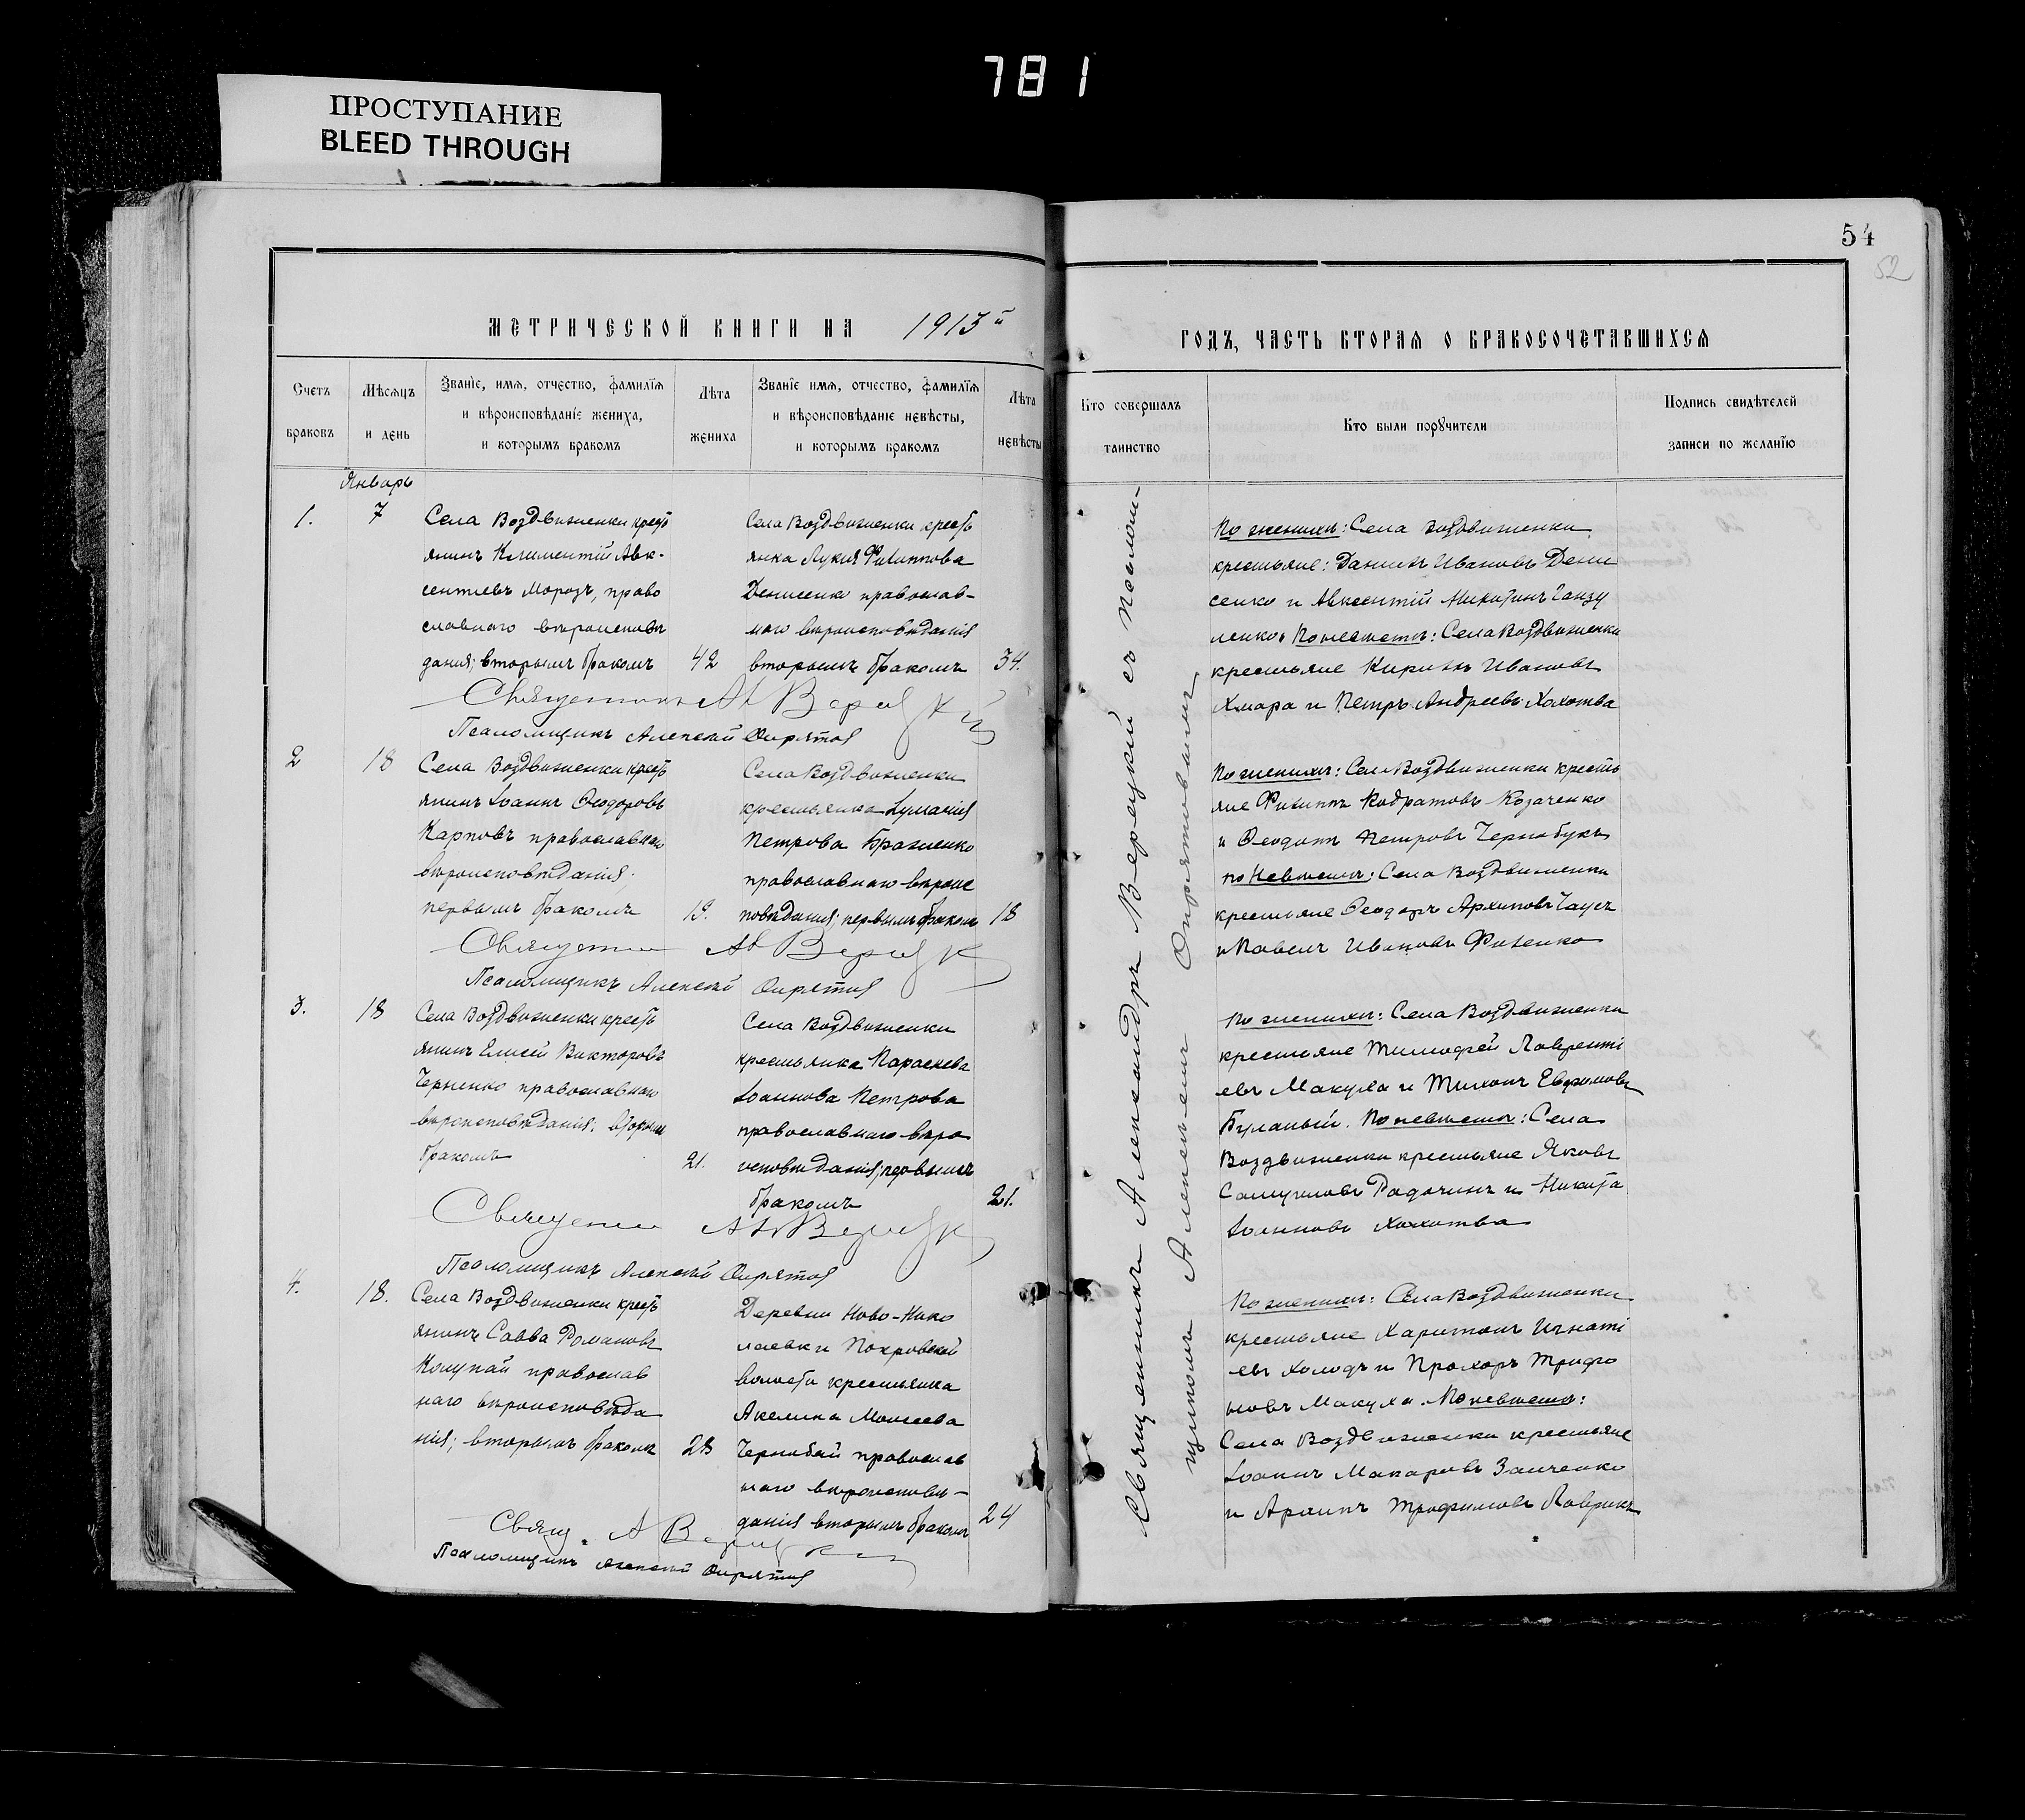 781
ПРОСТУПАНИЕ
BLEED THROUGH
54
52
МЕТРИЧЕСКОЙ КНИГИ НА 1913й
ГОДЪ, ЧАСТЬ ВТОРАЯ О БРАКОСОЧЕТАВШИХСЯ
Счетъ
браковъ
Мѣсяцъ
и день
Званіе, имя, отчество, фамилія
и вѣроисповѣданіе жениха,
и которымъ бракомъ
Лѣта
жениха
Званіе имя, отчество, фамилія
и вѣроисповѣданіе невѣсты,
и которымъ бракомъ
Лѣта
невѣсты
Кто совершалъ
таинство
Кто были поручители
Подпись свидѣтелей
записи по желанію
Январь
1.
7
Села Воздвиженки кресть
янинъ Климентій Авк-
сентіевъ Морозъ, право
славнаго вѣроисповѣ
данія; вторымъ бракомъ
42
Села Воздвиженки кресть
янка Лукія Филиппова
Денисенко православ-
наго вѣроисповѣданія
вторымъ бракомъ
34.
Священникъ Ал Верецкій
Псаломщикъ Алексѣй Опрятовъ
По женихѣ: Села Воздвиженки
крестьяне: Даніилъ Ивановъ Дени
сенко и Авксентій Никитинъ Ганзу
ленко. По невѣстѣ: Села Воздвиженки
крестьяне Кириллъ Ивановъ
Хмара и Петръ Андреевъ Хохотва
2
18
Села Воздвиженки кресть
янинъ Іоаннъ Ѳеодоровъ
Карповъ православнаго
вѣроисповѣданія;
первымъ бракомъ
19.
Села Воздвиженки
крестьянка
Петрова Браженко
православнаго вѣроис
повѣданія; первымъ бракомъ
18
Священник Ал Верецк
Псаломщикъ Алексѣй Опрятовъ
По женихѣ: Села Воздвиженки кресть
яне Филиппъ Кодратовъ Козаченко
и Ѳеодотъ Петровъ Чернобукъ
по Невѣстѣ: Села Воздвиженки
крестьяне Ѳеодоръ Архиповъ Гаусъ
и Павелъ Ивановъ Фисенко
3.
18
Села Воздвиженки кресть
янинъ Елисей Викторовъ
Черненко православнаго
вѣроисповѣданія; вторымъ
бракомъ
21.
Села Воздвиженки
крестьянка Параскева
Іоаннова Петрова
православнаго вѣро
исповѣданія; первымъ
бракомъ
21.
Священник Ал Верецк
Псаломщикъ Алексѣй Опрятовъ
По женихѣ: Села Воздвиженки
крестьяне Тимофей Лавренті
евъ Макуха и Тихонъ Евфимовъ
Буланый. По невѣстѣ: Села
Воздвиженки крестьяне Яковъ
Самуиловъ Радочинъ и Никита
Іоанновъ Хохотва
4.
18.
Села Воздвиженки кресть
янинъ Савва Романовъ
Колупай православ
наго вѣроисповѣда
нія; вторымъ бракомъ
28
Деревни Ново-Нико
лаевки Покровской
волости крестьянка
Акелина Моисеева
Чернобай православ
наго вѣроисповѣ-
данія вторымъ бракомъ
24
Свящ. А Верецкій
Псаломщикъ Алексѣй Опрятовъ
По женихѣ: Села Воздвиженки
крестьяне Харитонъ Игнаті
евъ Холодъ и Прохоръ Трифо
новъ Макуха. По невѣстѣ:
Села Воздвиженки крестьяне
Іоаннъ Макаровъ Заиченко
и Архипъ Трофимовъ Лаврикъ
Священникъ Александръ Верецкій съ Псалом-
щикомъ Алексѣемъ Опрятовымъ